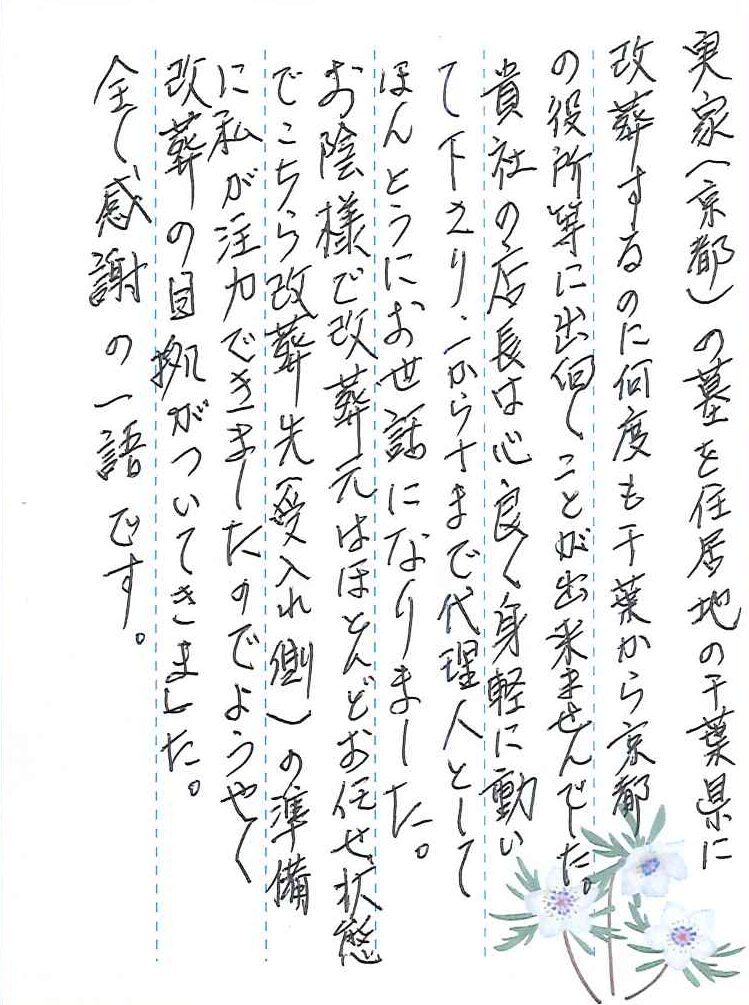 実家(京都)の墓を住居地の千葉県に
改葬するのに何度も千葉から京都
の役所等に出向くことが出来ませんでした。
貴社の店長は心良く身軽に動い
て下さり、一から十まで代理人として
ほんとうにお世話になりました。
お陰様で改葬元はほとんどお任せ状態
でこちら改葬先(受入れ側)の準備
に私が注力できましたのでようやく
改葬の目拠がついてきました。
全く感謝の一語です。